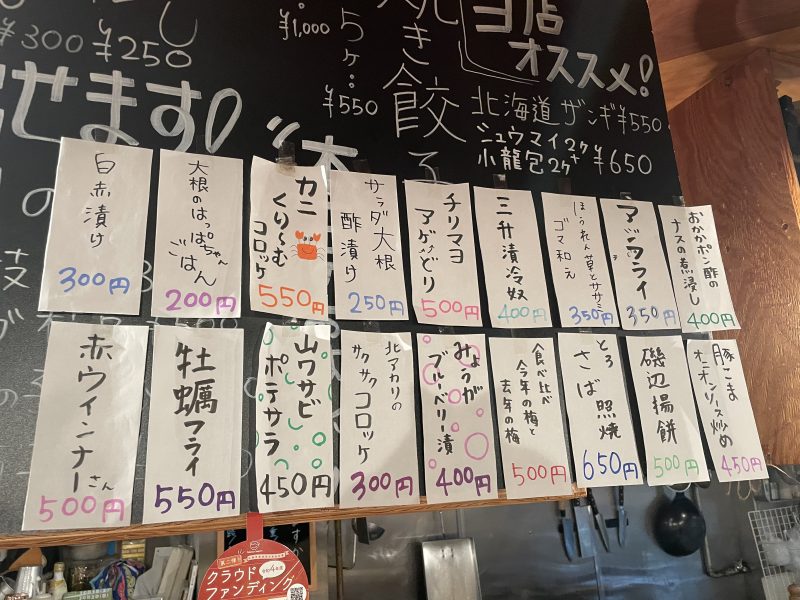 し
¥300
¥250
¥1,000
5ヶ
¥550
焼き餃子
オススメ!
北海道ザンギ¥550
シュウマイ2ヶ
小龍包2ヶ
¥650
せます!
白赤漬け
300円
大根の
はっぱちゃん
ごはん
200円
カニ
くり〜む
コロッケ
550円
サラダ大根
酢漬け
250円
チリマヨ
アゲどり
500円
三升漬冷奴
400円
ほうれん草とササミ
ゴマ和え
350円
アジフライ
350円
おかかポン酢の
ナスの煮浸し
400円
赤ウインナーさん
500円
牡蠣フライ
550円
山ワサビ
ポテサラ
450円
北アカリの
サクサクコロッケ
300円
みょうが
ブルーベリー漬
400円
食べ比べ
今年の梅と
去年の梅
500円
とろさば照焼
650円
磯辺揚餅
500円
豚こま
オニオンソース炒め
450円
クラウド
ファンディング
令和4年度